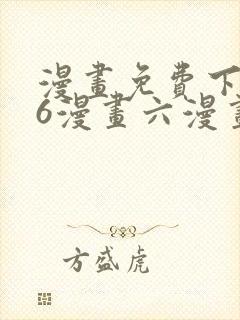 漫畫免費下
6漫畫六漫畫
方盛虎